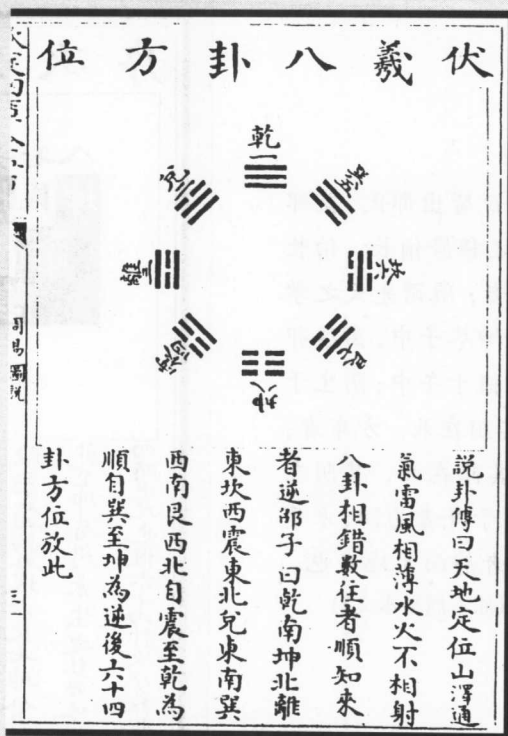 伏羲八卦方位
乾一
兌二
離三
震四
巽五
坎六
艮七
坤八
說卦傳曰天地定位山澤通
氣雷風相薄水火不相射
八卦相錯數往者順知來
者逆邵子曰乾南坤北離
東坎西震東北兌東南巽
西南艮西北自震至乾為
順自巽至坤為逆後六十四
卦方位放此
周易圖說
三